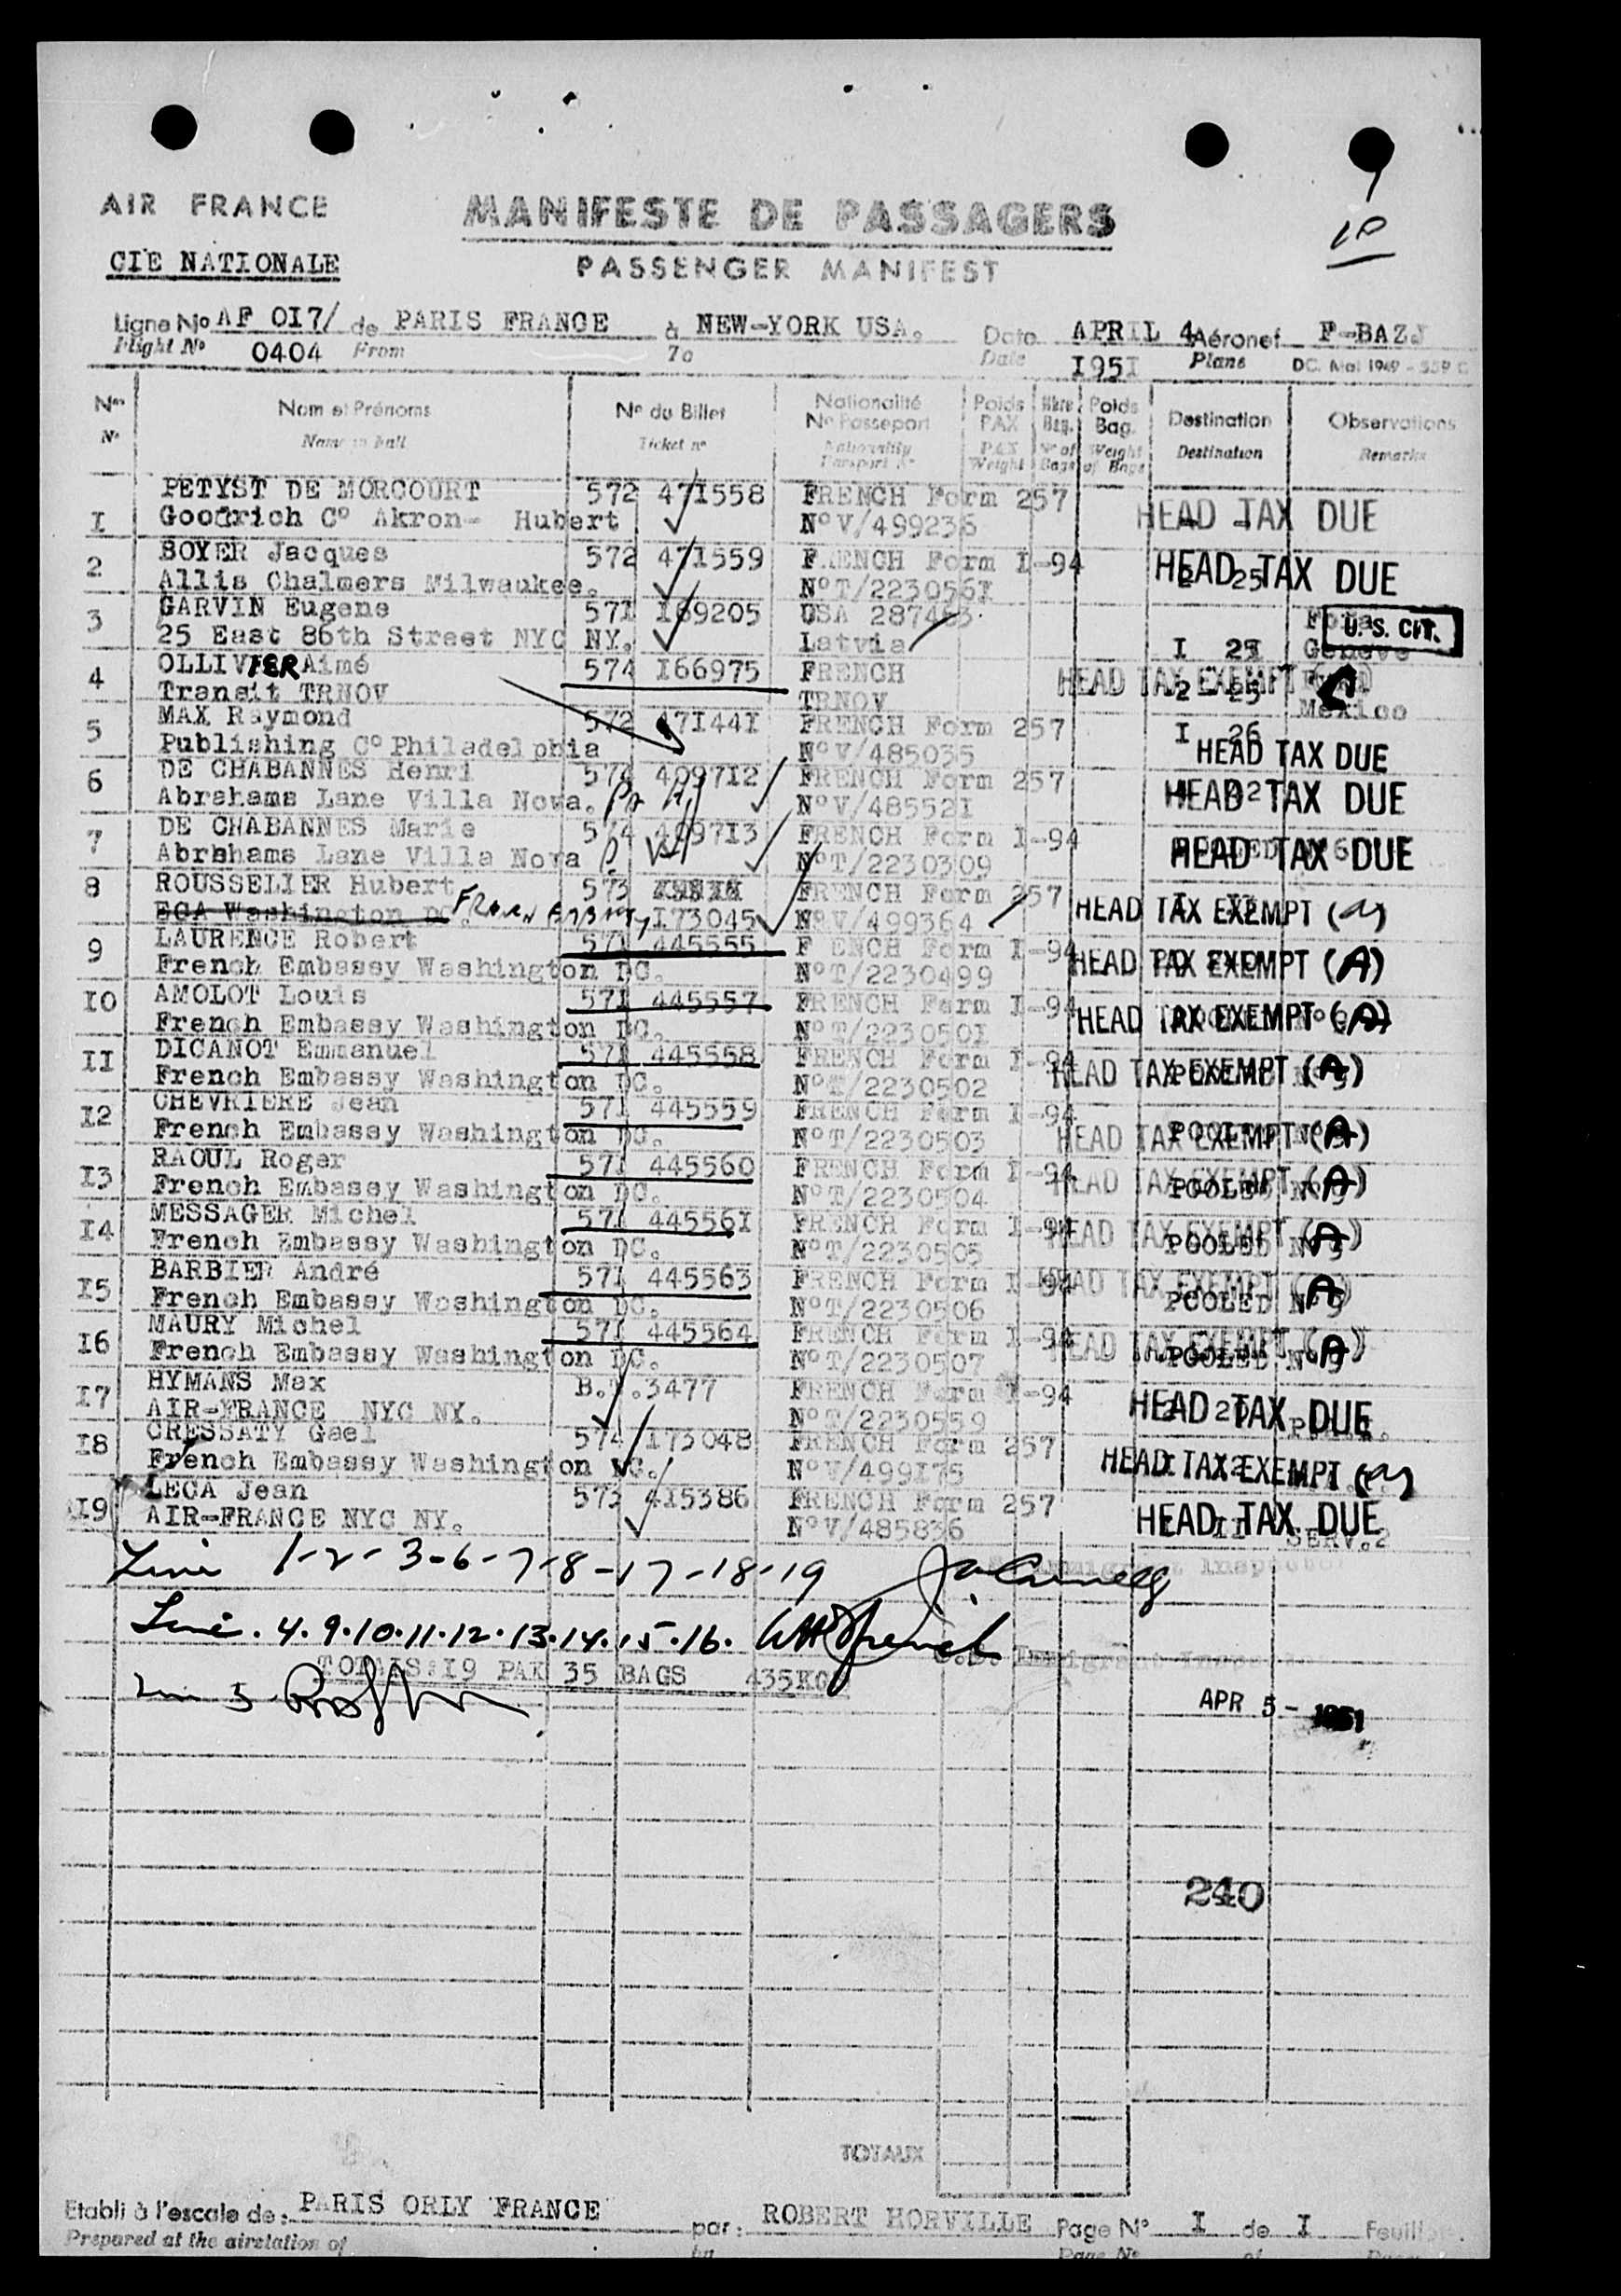 10
AIR FRANCE
MANIFESTE DE PASSAGERS
CIE NATIONALE
PASSENGER MANIFEST
Ligne No AF OI7/ de PARIS FRANCE à NEW-YORK USA. Date APRIL 4 Aéronef F-BAZJ
Flight No 0404 From To Date I95I Plane DC. Mai 1949 - 559 C
Nos Nom et Prénoms No du Billet Nationalité No Passeport Poids PAX Nbre Bag. Poids Bag. Destination Observations
No Name in full Ticket no Nationality Passport No PAX Weight No of Bags Weight of Bags Destination Remarks
PETYST DE MORCOURT 572 47I558 FRENCH Form 257
I Goodrich Co Akron- Hubert No V/499236 HEAD TAX DUE
BOYER Jacques 572 47I559 F.ENCH Form I-94
2 Allis Chalmers Milwaukee. NoT/223056I 2 25 HEAD TAX DUE
GARVIN Eugene 57I I69205 USA 287463
3 25 East 86th Street NYC NY. Latvia I U.S. CIT. Geneve
OLLIVIER Aimé 574 I66975 FRENCH
4 Transit TRNOV TRNOV 2 HEAD TAX EXEMPT (C) Mexico
MAX Raymond 572 47I44I FRENCH Form 257
5 Publishing Co Philadelphia No V/485035 I 26 HEAD TAX DUE
DE CHABANNES Henri 574 409712 FRENCH Form 257
6 Abrahams Lane Villa Nova. No V/48552I HEAD TAX DUE
DE CHABANNES Marie 574 409713 FRENCH Form I-94
7 Abrahams Lane Villa Nova NoT/2230309 HEAD TAX DUE
ROUSSELIER Hubert 573 FRENCH Form 257
8 ECA Washington DC. I73045 No V/499364 HEAD TAX EXEMPT
LAURENCE Robert 57I 445555 F ENCH Form I-94
9 French Embassy Washington DC. NoT/2230499 HEAD TAX EXEMPT (A)
AMOLOT Louis 57I 445557 FRENCH Form I-94
IO French Embassy Washington DC. NoT/223050I HEAD TAX EXEMPT (A)
DICANOT Emmanuel 57I 445558 FRENCH Form I-94
II French Embassy Washington DC. NoT/2230502 HEAD TAX EXEMPT (A) POOLED No 9
CHEVRIERE Jean 57I 445559 FRENCH Form I-94
I2 French Embassy Washington DC. NoT/2230503 HEAD TAX EXEMPT (A) POOLED No 9
RAOUL Roger 57I 445560 FRENCH Form I-94
I3 French Embassy Washington DC. NoT/2230504 HEAD TAX EXEMPT (A) POOLED No 9
MESSAGER Michel 57I 44556I FRENCH Form I-94
I4 French Embassy Washington DC. NoT/2230505 HEAD TAX EXEMPT (A) POOLED No 9
BARBIER André 57I 445563 FRENCH Form I-94
I5 French Embassy Woshington DC. NoT/2230506 HEAD TAX EXEMPT (A) POOLED No 9
MAURY Michel 57I 445564 FRENCH Form I-94
I6 French Embassy Washington DC. NoT/2230507 HEAD TAX EXEMPT (A) POOLED No 9
HYMANS Max B.T.3477 FRENCH Form I-94
I7 AIR-FRANCE NYC NY. NoT/2230559 HEAD TAX DUE
CRESSATY Gael 574 I73048 FRENCH Form 257
I8 French Embassy Washington DC. No V/499I75 HEAD TAX EXEMPT
LECA Jean 573 4I5386 FRENCH Form 257
I9 AIR-FRANCE NYC NY. No V/485836 HEAD TAX DUE SERV.2
Line 1-2-3-6-7-8-17-18-19 Immigrant Inspector
Line. 4.9.10.11.12.13.14.15.16.
U.S. Immigrant Inspector
TOTALS:I9 PAX 35 BAGS 435KGS
Line 5
APR 5 - 1951
240
TOTAUX
Etabli à l'escale de: PARIS ORLY FRANCE par: ROBERT HORVILLE Page No I de I Feuilles
Prepared at the airstation of by Page No of